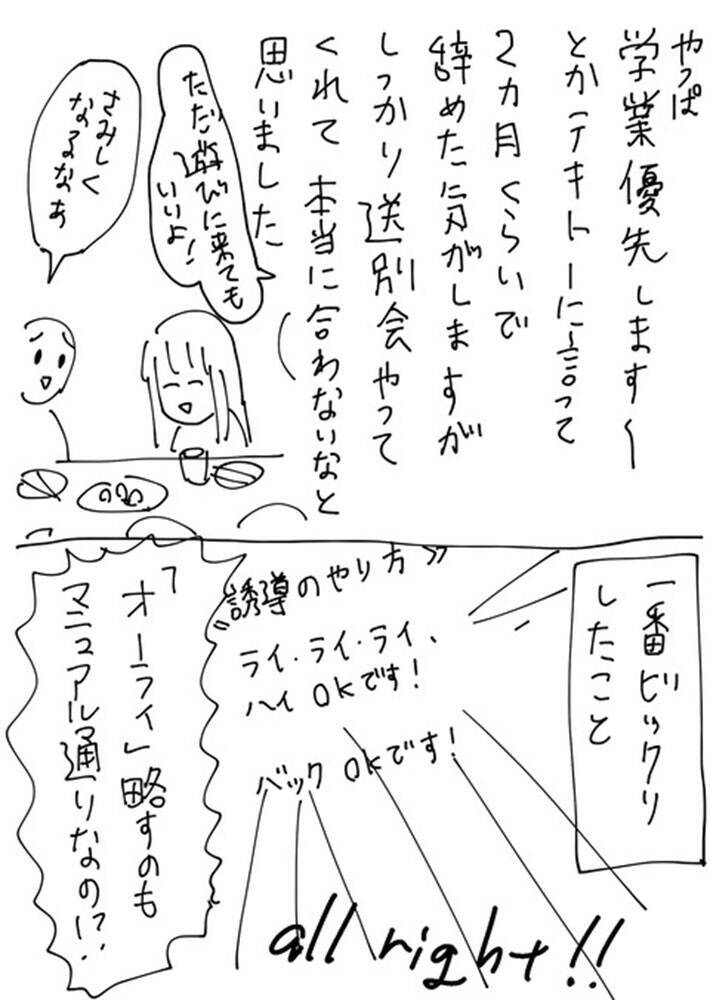 やっぱ
学業優先します〜
とかテキトーに言って
2カ月くらいで
辞めた気がしますが
しっかり送別会やって
くれて本当に合わないなと
思いました
ただ遊びに来ても
いいよ!
さみしく
なるなぁ
一番ビックリ
したこと
"誘導のやり方"
ライ・ライ・ライ、
ハイOKです!
バックOKです!
all right!!
「オーライ」略すのも
マニュアル通りなの!?